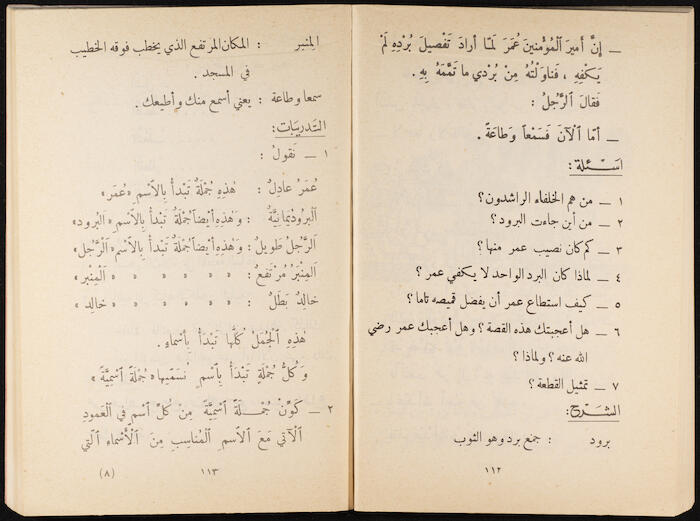 ــ إِنَّ أَميرَ ٱلْمُؤْمِنينَ عُمَرَ لَمّا أَرادَ تَفْصيلَ بُرْدِهِ لَمْ
يَكْفِهِ ، فَناوَلْتُهُ مِنْ بُرْدي ما تَمَّمَهُ بِهِ .
فَقالَ ٱلرَّجُلُ :
ــ أَمّا ٱلْآنَ فَسَمْعاً وَطاعَةً .
اسئلة :
١ ــ من هم الخلفاء الراشدون ؟
٢ ــ من أين جاءت البرود ؟
٣ ــ كم كان نصيب عمر منها ؟
٤ ــ لماذا كان البرد الواحد لا يكفي عمر ؟
٥ ــ كيف استطاع عمر أن يفصل قميصه تاما ؟
٦ ــ هل أعجبتك هذه القصة ؟ وهل أعجبك عمر رضي
الله عنه ؟ ولماذا ؟
٧ ــ تمثيل القطعة ؟
الشرح :
برود : جمع برد وهو الثوب
١١٢
المنبر : المكان المرتفع الذي يخطب فوقه الخطيب
في المسجد .
سمعا وطاعة : يعني أسمع منك وأطيعك .
التدريبات :
١ ــ نَقولُ :
عُمَرُ عادِلٌ : هٰذِهِ جُمْلَةٌ تَبْدَأُ بِالْٱسْمِ «عُمَر»
ٱلْبُرودُ يَمانِيَّةٌ : وَهٰذِهِ أَيْضاً جُمْلَةٌ تَبْدَأُ بِالْٱسْمِ «البرود»
ٱلرَّجُلُ طَويلٌ : وَهٰذِهِ أَيْضاً جُمْلَةٌ تَبْدَأُ بِالْٱسْمِ «ٱلرَّجُل»
ٱلْمِنْبَرُ مُرْتَفِعٌ : » » » » » «ٱلْمِنْبَر»
خالِدٌ بَطَلٌ : » » » » » «خالِد»
هٰذِهِ ٱلْجُمَلُ كُلُّها تَبْدَأُ بِأَسْماءٍ .
وَكُلُّ جُمْلَةٍ تَبْدَأُ بِٱسْمٍ نُسَمّيها «جُمْلَةً ٱسْمِيَّةً»
٢ ــ كَوِّنْ جُمْلَةً ٱسْمِيَّةً مِنْ كُلِّ ٱسْمٍ في ٱلْعَمودِ
ٱلْآتي مَعَ ٱلْاسْمِ ٱلْمُناسِبِ مِنَ ٱلْأَسْماءِ ٱلَّتي
١١٣ (٨)